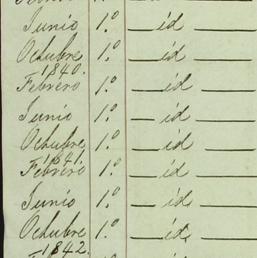 Junio 1.º — id —
Octubre 1.º — id —
1840.
Febrero 1.º — id —
Junio 1.º — id —
Octubre 1.º — id —
1841.
Febrero 1.º — id —
Junio 1.º — id —
Octubre 1.º — id. —
1842.